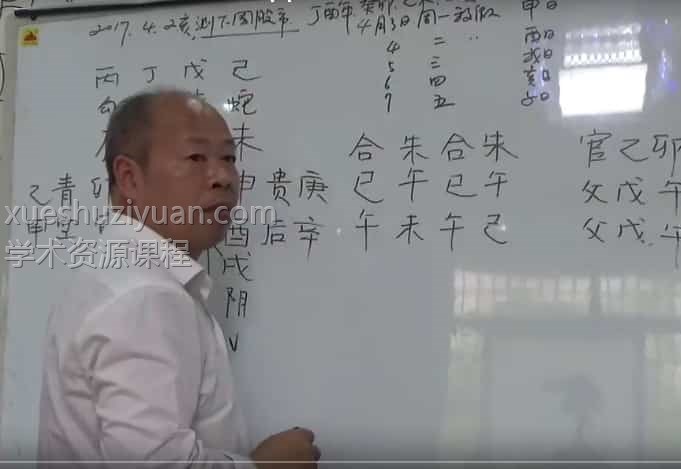 2017.4.2 测下周股市 丁酉年 癸卯
4月3日周一 放假 申日
4 二 〃 酉日
5 三 戌日
6 四 亥日
7 五 子日
丙 丁 戊 己
勾 蛇
未
乙 青 卯 申 贵 庚
酉 后 辛
戌
阴
合 朱 合 朱
巳 午 巳 午
午 未 午 己
官 乙 卯
父 戊 午
父 戊 午
xueshuziyuan.com
学术资源课程